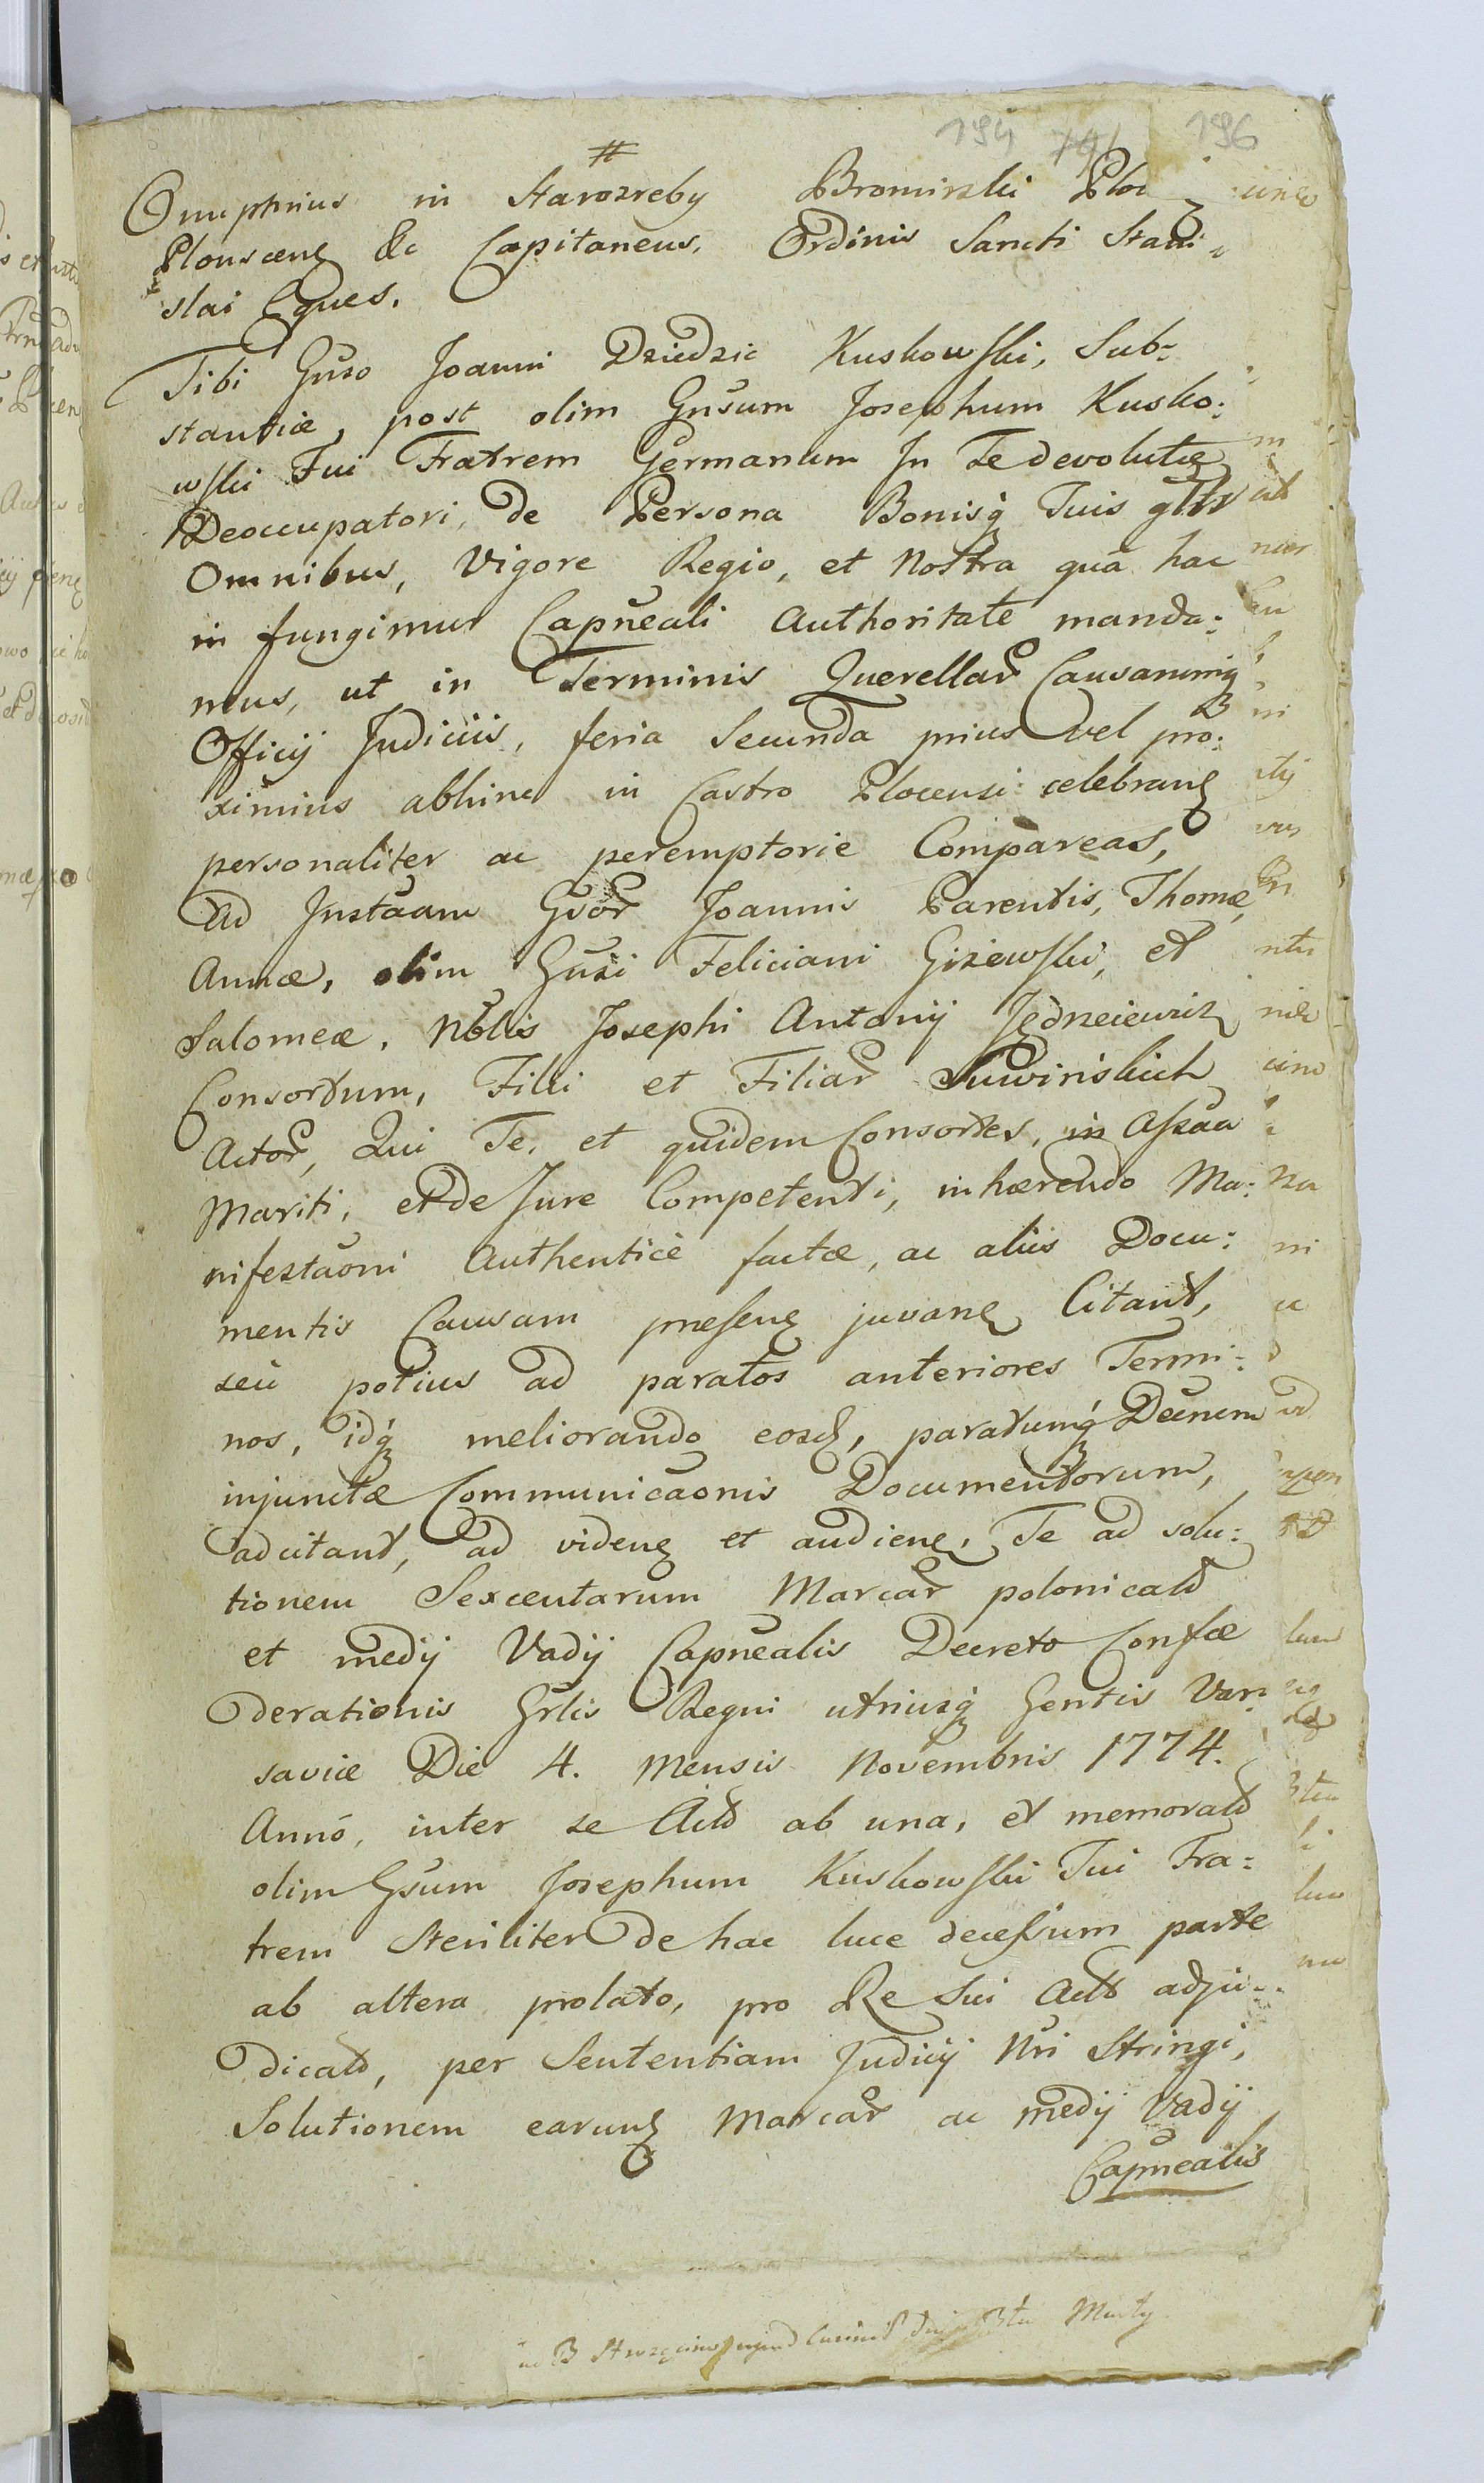 194 741 196
#
Onuphrius in Starozreby Bromirski Ploc
Plonscenq &c Capitaneus, Ordinis Sancti Stani:
slai Eques.
Tibi Gnso Joanni Dziedzic Kuskowski, Sub:
stantiæ, post olim Gnsum Josephum Kusko:
wski Tui Fratrem Germanum In Te devolutæ
Deoccupatori, de Persona Bonisq Tuis gtlr
Omnibus, Vigore Regio, et Nostra quâ hac
in fungimur Capneali Authoritate manda:
mus, ut in Terminis Querellar Causarumq
Officij Judiciis, feria Secunda prius vel pro:
ximius abhinc in Castro Plocensi celebranq
personaliter ac peremptorie Compareas,
Ad Instãam Gsor Joannis Parentis, Thomæ,
Annæ, olim Gnsi Feliciani Giżewski, et
Salomeæ, Nobis Josephi Antonij Jędrzeiewicz
Consortum, Filii et Filiar Suwińskich
Actor, Qui Te, et quidem Consortes, in Assãa
Mariti, et de Jure Competenti, inhærendo Ma:
nifestãoni Authenticè factæ, ac aliis Docu:
mentis Causam præsenq juvanq Citant,
seù potius ad paratos anteriores Termi:
nos, idq meliorando eosq, paratumq Decnum
injunctæ Communicãonis Documentorum,
adcitant, ad videnq et audienq, Te ad solu:
tionem Sexcentarum Marcar polonicald
et medij Vadij Capnealis Decreto Confæ
derationis Grlis Regni utriusq Gentis Var:
saviæ Die 4. Mensis Novembris 1774.
Annó, inter se Actt ab una, et memorald
olim Gsum Josephum Kuskowski Tui Fra:
trem Steriliter de hac luce decessum parte
ab altera prolato, pro Re Sui Actt adju:
dicald, per Sententiam Judicij Nri Stringi,
Solutionem earunq Marcar ac medij Vadij
Capnealis